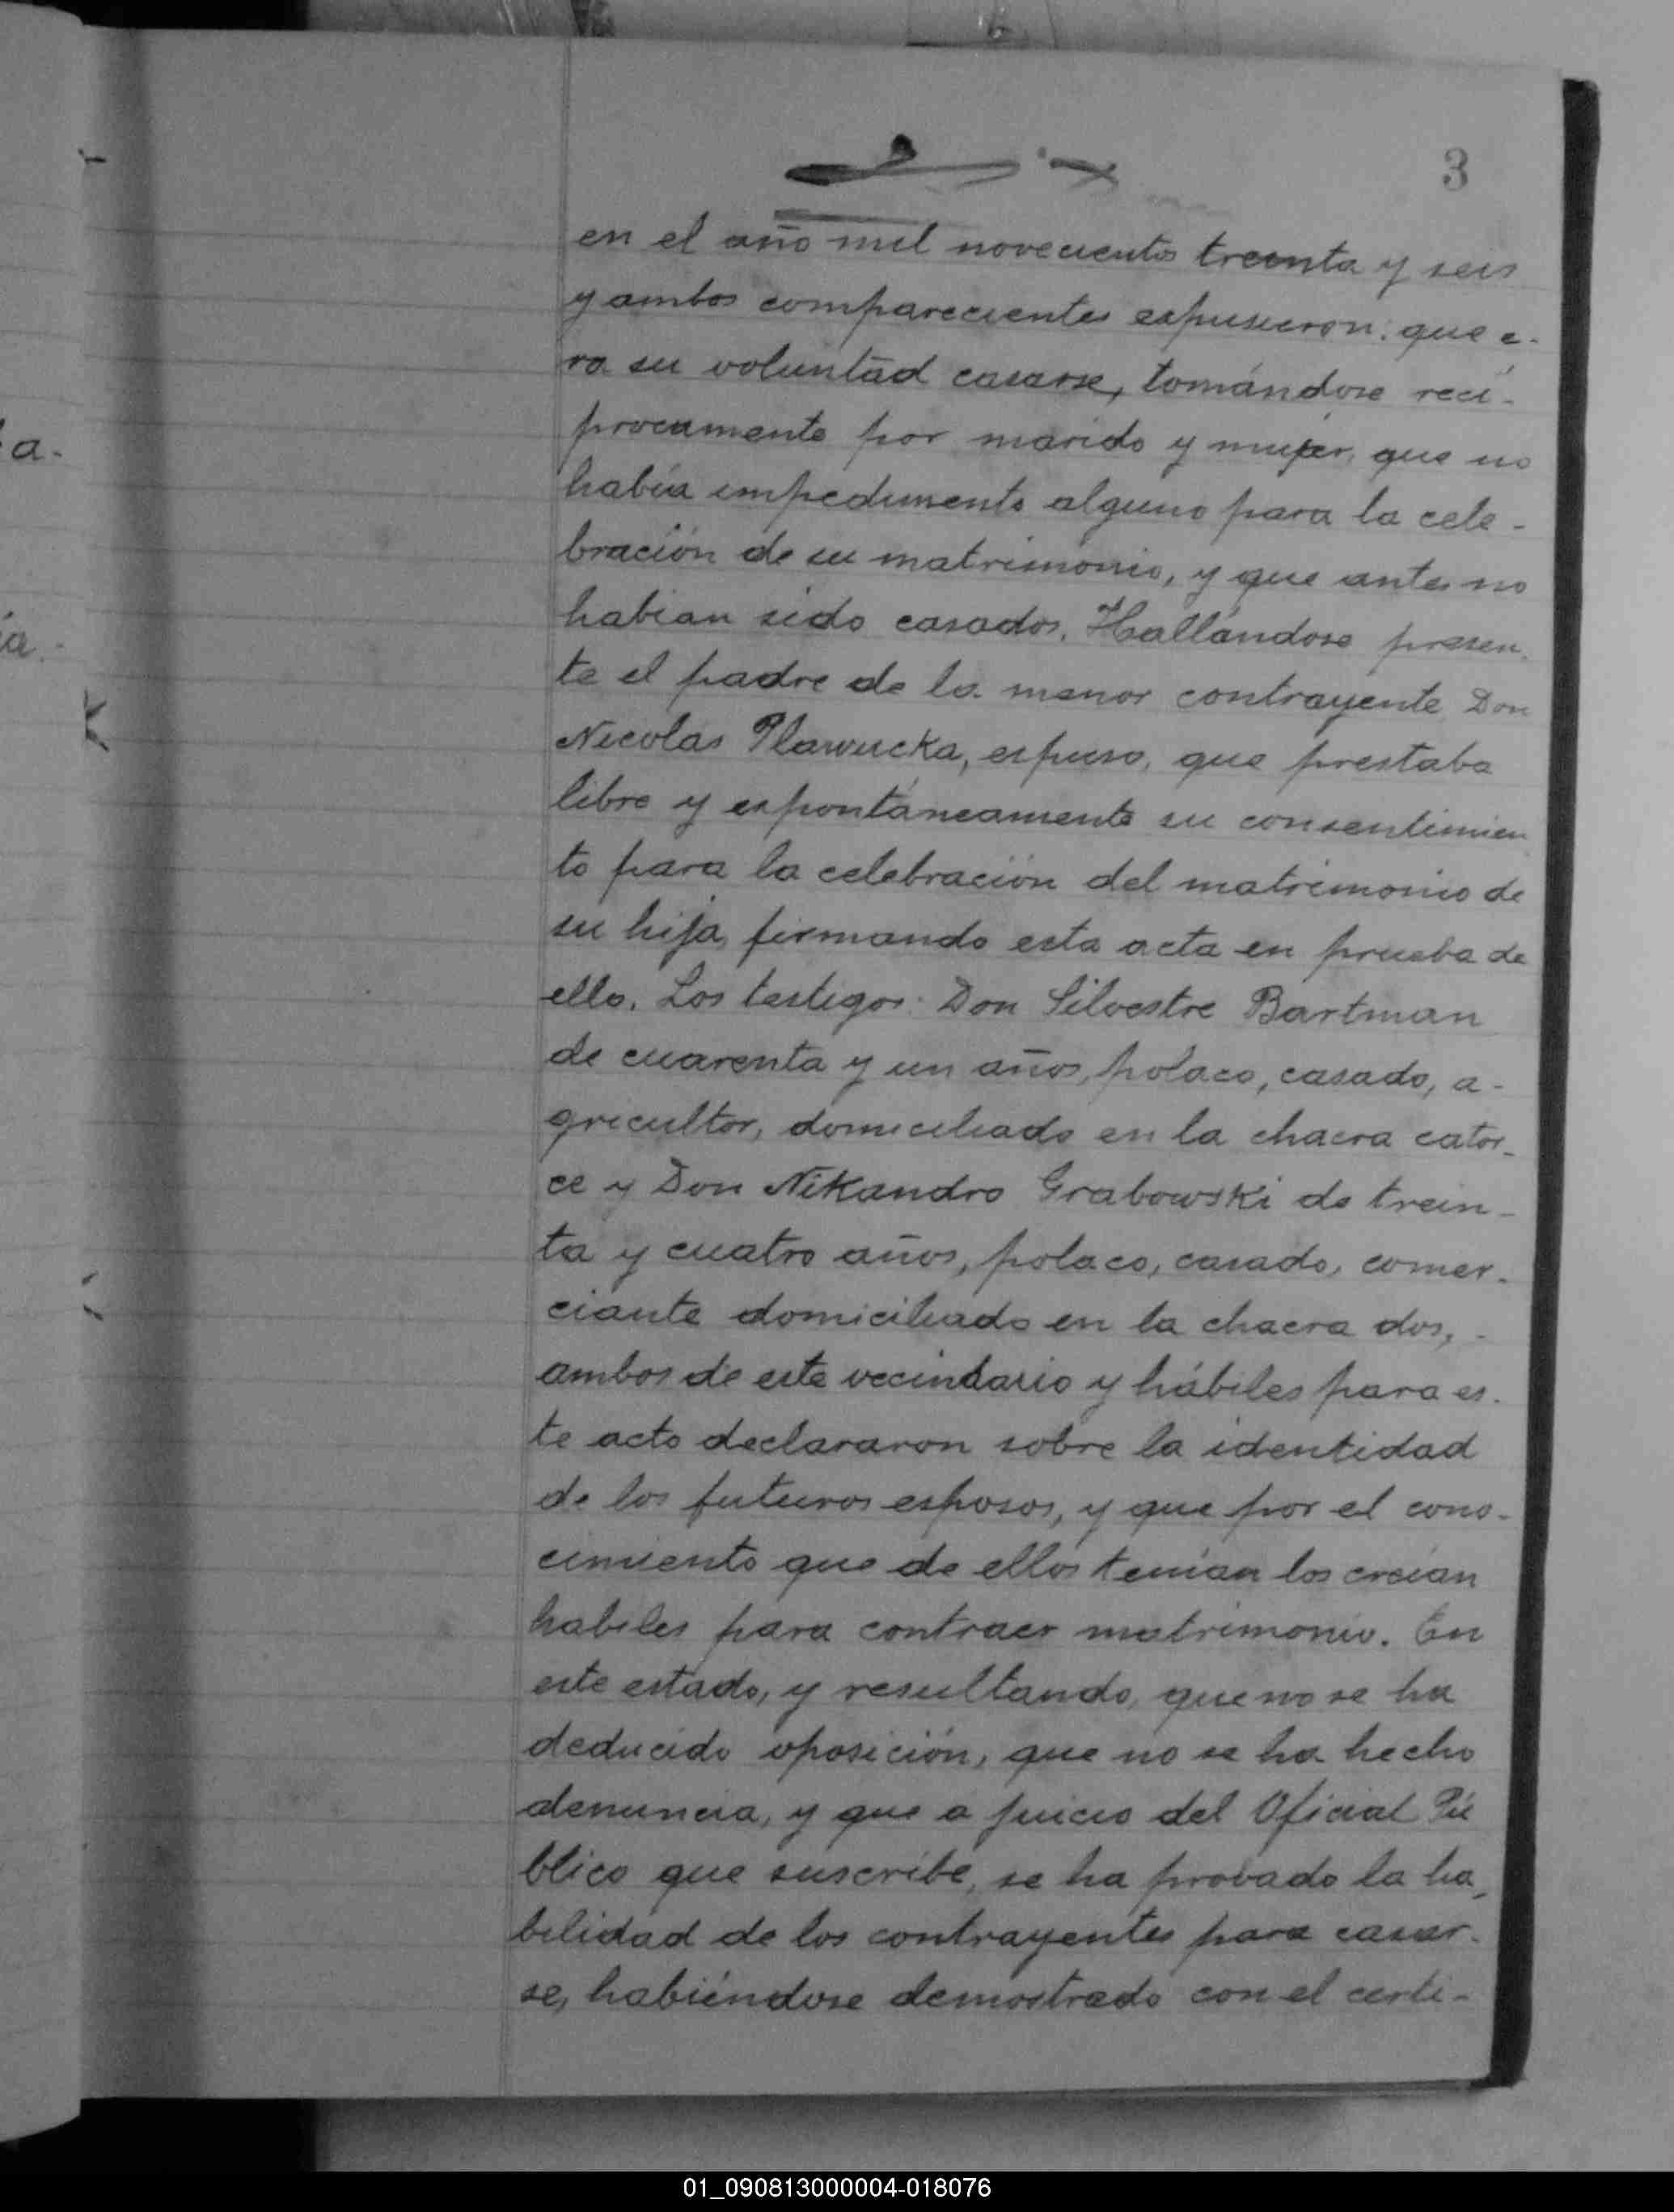 3
en el año mil novecientos treinta y seis
y ambos comparecientes expusieron: que e-
ra su voluntad casarse, tomándose recí-
procamente por marido y mujer, que no
había impedimento alguno para la cele-
bración de su matrimonio, y que antes no
habian sido casados. Hallándose presen-
te el padre de la menor contrayente Don
Nicolas Plawucka, expuso, que prestaba
libre y espontáneamente su consentimien
to para la celebración del matrimonio de
su hija, firmando esta acta en prueba de
ello. Los testigos: Don Silvestre Bartman
de cuarenta y un años, polaco, casado, a-
gricultor, domiciliado en la chacra cator-
ce y Don Nikandro Grabowski de trein-
ta y cuatro años, polaco, casado, comer-
ciante domiciliado en la chacra dos, -
ambos de este vecindario y hábiles para es-
te acto declararon sobre la identidad
de los futuros esposos, y que por el cono-
cimiento que de ellos tenían los creían
habiles para contraer matrimonio. En
este estado, y resultando, que no se ha
deducido oposición, que no se ha hecho
denuncia, y que a juicio del Oficial Pú
blico que suscribe, se ha probado la ha-
bilidad de los contrayentes para casar-
se, habiéndose demostrado con el certi-
a.
ia.
01_090813000004-018076